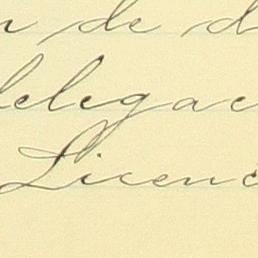 n de d
delegac
Licenc